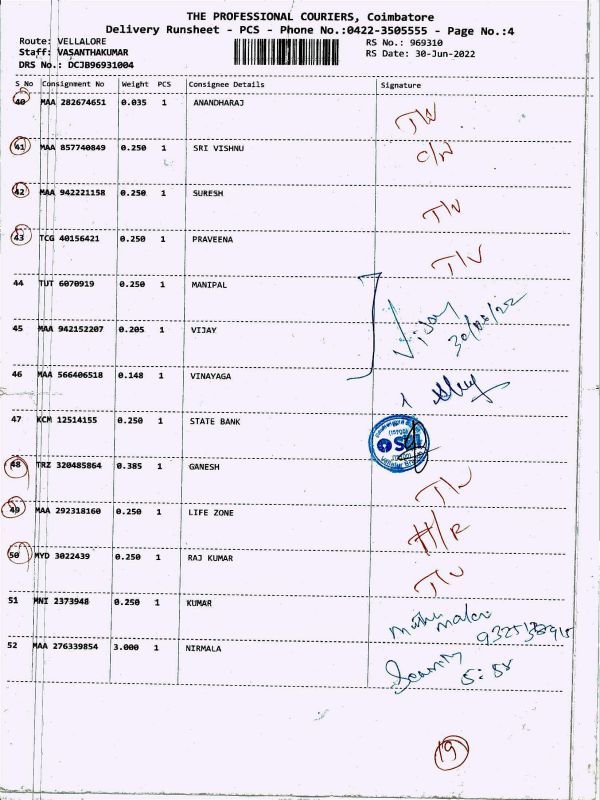 THE PROFESSIONAL COURIERS, Coimbatore
Delivery Runsheet - PCS - Phone No.:0422-3505555 - Page No.:4
Route: VELLALORE RS No.: 969310
Staff: VASANTHAKUMAR RS Date: 30-Jun-2022
DRS No.: DCJB96931004
S No Consignment No Weight PCS Consignee Details Signature
40 MAA 282674651 0.035 1 ANANDHARAJ
41 MAA 857740849 0.250 1 SRI VISHNU
42 MAA 942221158 0.250 1 SURESH
43 TCG 40156421 0.250 1 PRAVEENA
44 TUT 6070919 0.250 1 MANIPAL
45 MAA 942152207 0.205 1 VIJAY Vijay
30/06/22
46 MAA 566406518 0.148 1 VINAYAGA
47 KCM 12514155 0.250 1 STATE BANK
48 TRZ 320485864 0.385 1 GANESH
49 MAA 292318160 0.250 1 LIFE ZONE H/R
50 MYD 3022439 0.250 1 RAJ KUMAR
51 MNI 2373948 0.250 1 KUMAR
52 MAA 276339854 3.000 1 NIRMALA
19